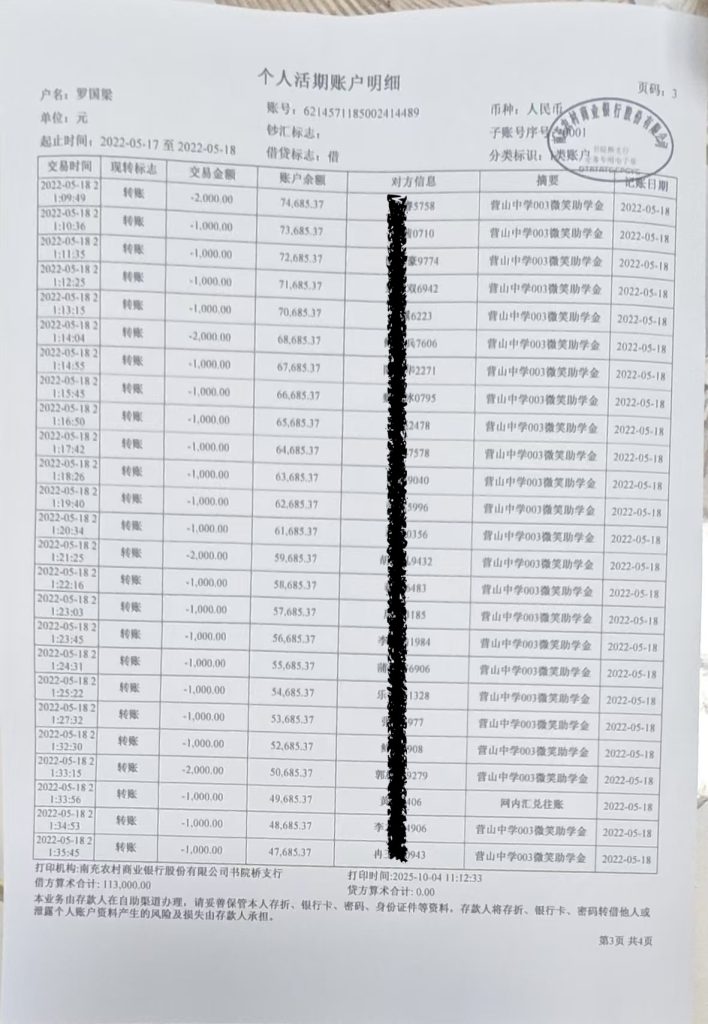 个人活期账户明细
页码：3
户名：罗国梁
账号：6214571185002414489
币种：人民币
单位：元
钞汇标志：
子账号序号：0001
起止时间：2022-05-17 至 2022-05-18
借贷标志：借
分类标识：I类账户
交易时间 现转标志 交易金额 账户余额 对方信息 摘要 记账日期
2022-05-18 21:09:49 转账 -2,000.00 74,685.37 5758 营山中学003微笑助学金 2022-05-18
2022-05-18 21:10:36 转账 -1,000.00 73,685.37 0710 营山中学003微笑助学金 2022-05-18
2022-05-18 21:11:35 转账 -1,000.00 72,685.37 豪9774 营山中学003微笑助学金 2022-05-18
2022-05-18 21:12:25 转账 -1,000.00 71,685.37 双6942 营山中学003微笑助学金 2022-05-18
2022-05-18 21:13:15 转账 -1,000.00 70,685.37 6223 营山中学003微笑助学金 2022-05-18
2022-05-18 21:14:04 转账 -2,000.00 68,685.37 兵7606 营山中学003微笑助学金 2022-05-18
2022-05-18 21:14:55 转账 -1,000.00 67,685.37 2271 营山中学003微笑助学金 2022-05-18
2022-05-18 21:15:45 转账 -1,000.00 66,685.37 冰0795 营山中学003微笑助学金 2022-05-18
2022-05-18 21:16:50 转账 -1,000.00 65,685.37 2478 营山中学003微笑助学金 2022-05-18
2022-05-18 21:17:42 转账 -1,000.00 64,685.37 7578 营山中学003微笑助学金 2022-05-18
2022-05-18 21:18:26 转账 -1,000.00 63,685.37 9040 营山中学003微笑助学金 2022-05-18
2022-05-18 21:19:40 转账 -1,000.00 62,685.37 5996 营山中学003微笑助学金 2022-05-18
2022-05-18 21:20:34 转账 -1,000.00 61,685.37 0356 营山中学003微笑助学金 2022-05-18
2022-05-18 21:21:25 转账 -2,000.00 59,685.37 9432 营山中学003微笑助学金 2022-05-18
2022-05-18 21:22:16 转账 -1,000.00 58,685.37 483 营山中学003微笑助学金 2022-05-18
2022-05-18 21:23:03 转账 -1,000.00 57,685.37 185 营山中学003微笑助学金 2022-05-18
2022-05-18 21:23:45 转账 -1,000.00 56,685.37 李 1984 营山中学003微笑助学金 2022-05-18
2022-05-18 21:24:31 转账 -1,000.00 55,685.37 蒲 6906 营山中学003微笑助学金 2022-05-18
2022-05-18 21:25:22 转账 -1,000.00 54,685.37 乐 1328 营山中学003微笑助学金 2022-05-18
2022-05-18 21:27:32 转账 -1,000.00 53,685.37 977 营山中学003微笑助学金 2022-05-18
2022-05-18 21:32:30 转账 -1,000.00 52,685.37 908 营山中学003微笑助学金 2022-05-18
2022-05-18 21:33:15 转账 -2,000.00 50,685.37 郭 9279 营山中学003微笑助学金 2022-05-18
2022-05-18 21:33:56 转账 -1,000.00 49,685.37 黄 406 网内汇兑往账 2022-05-18
2022-05-18 21:34:53 转账 -1,000.00 48,685.37 李 4906 营山中学003微笑助学金 2022-05-18
2022-05-18 21:35:45 转账 -1,000.00 47,685.37 冉 0943 营山中学003微笑助学金 2022-05-18
打印机构:南充农村商业银行股份有限公司书院桥支行
打印时间:2025-10-04 11:12:33
借方算术合计: 113,000.00
贷方算术合计: 0.00
本业务由存款人在自助渠道办理，请妥善保管本人存折、银行卡、密码、身份证件等资料。存款人将存折、银行卡、密码转借他人或
泄露个人账户资料产生的风险及损失由存款人承担。
第3页 共4页